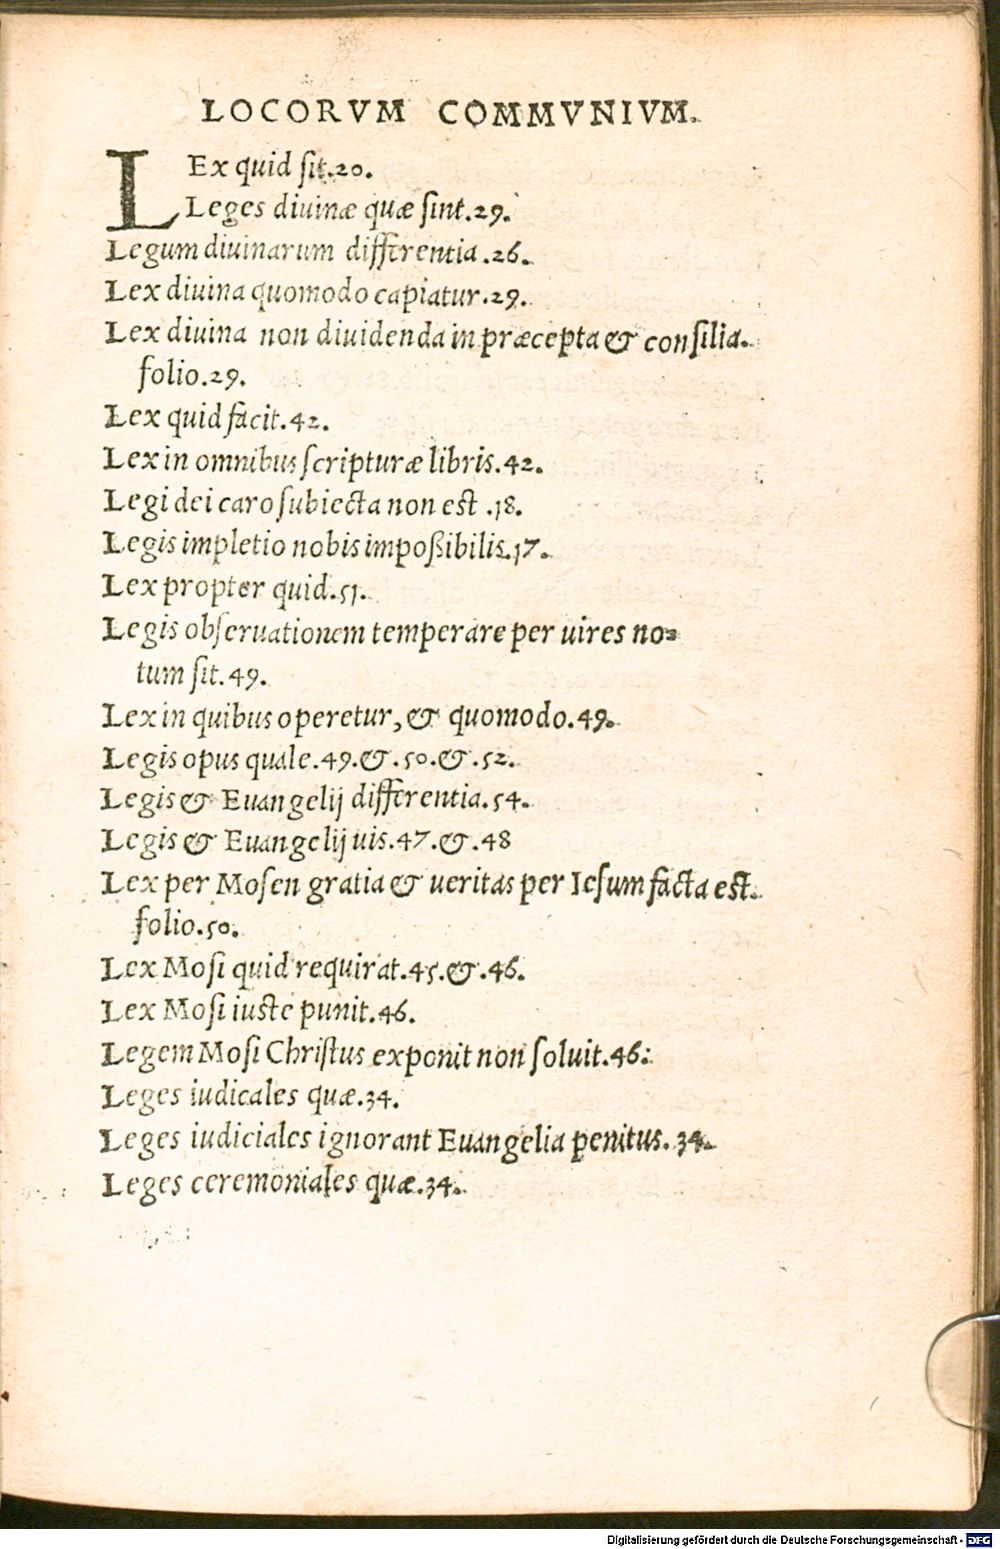 LOCORVM COMMVNIVM.
LEx quid sit.20.
Leges diuinæ quæ sint.29.
Legum diuinarum differentia.26.
Lex diuina quomodo capiatur.29.
Lex diuina non diuidenda in præcepta & consilia.
folio.29.
Lex quid facit.42.
Lex in omnibus scripturæ libris.42.
Legi dei caro subiecta non est .18.
Legis impletio nobis impoßibilis.17.
Lex propter quid.51.
Legis obseruationem temperare per uires no=
tum sit.49.
Lex in quibus operetur, & quomodo.49.
Legis opus quale.49.&.50.&.52.
Legis & Euangelij differentia.54.
Legis & Euangelij uis.47.&.48
Lex per Mosen gratia & ueritas per Iesum facta est.
folio.50.
Lex Mosi quid requirat.45.&.46.
Lex Mosi iuste punit.46.
Legem Mosi Christus exponit non soluit.46.
Leges iudicales quæ.34.
Leges iudiciales ignorant Euangelia penitus.34.
Leges ceremoniales quæ.34.
Digitalisierung gefördert durch die Deutsche Forschungsgemeinschaft - DFG